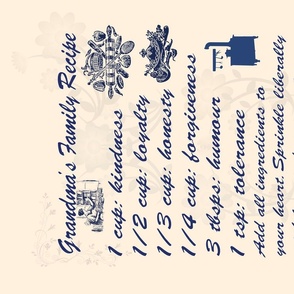 Grandm's Family Recipe
1 cup: kindness
1/2 cup: loyalty
1/3 cup: honesty
1/4 cup: forgiveness
3 tbsps: humour
1 tsp: tolerance
Add all ingredients to
your heart Sprinkle liberally